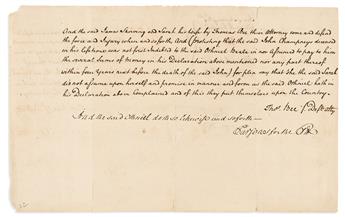 And the said James Skirving and Sarah his Wife by Thomas Bee their Attorney come and defend
the force and Injury when and so forth, And (Protesting that the said John Champneys deceased
in his Lifetime was not food Indebted to the said Othniel Beale in nor Assumed to pay to him
the several sums of money in his Declaration above mentioned nor any part thereof
within four years next before the death of the said John) for plea say that She the said Sarah
did not assume upon herself and promise in manner and form as the said Othniel hath in
his Declaration above Complained and of this they put themselves upon the Country.
Thos. Bee Defts Atty
And the said Othniel doth so likewise and so forth
Parsons for the Plt